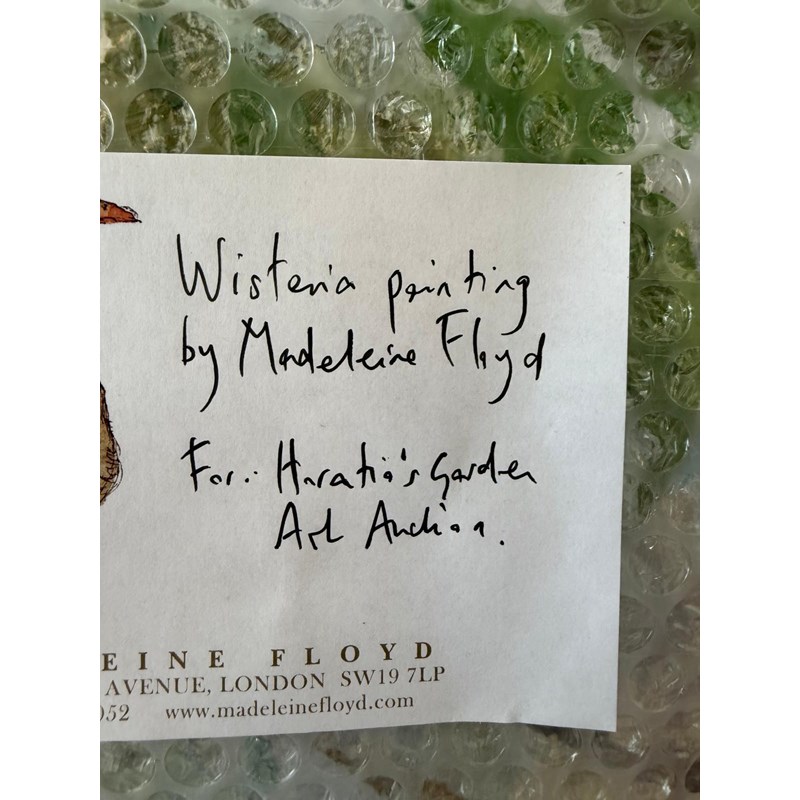 Wisteria painting
by Madeleine Floyd
For: Horatio's Garden
Art Auction.
EINE FLOYD
AVENUE, LONDON SW19 7LP
052 www.madeleinefloyd.com